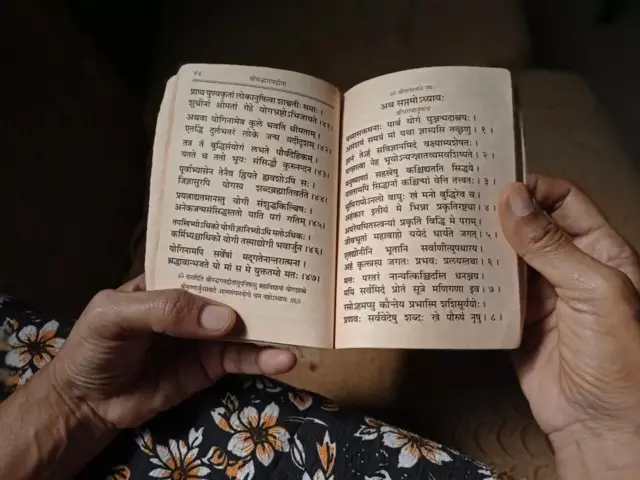 ४४
श्रीमद्भगवद्गीता
प्राप्य पुण्यकृतां लोकानुषित्वा शाश्वतीः समाः ।
शुचीनां श्रीमतां गेहे योगभ्रष्टोऽभिजायते ।४१।
अथवा योगिनामेव कुले भवति धीमताम् ।
एतद्धि दुर्लभतरं लोके जन्म यदीदृशम् ।४२।
तत्र तं बुद्धिसंयोगं लभते पौर्वदेहिकम् ।
यतते च ततो भूयः संसिद्धौ कुरुनन्दन ।४३।
पूर्वाभ्यासेन तेनैव ह्रियते ह्यवशोऽपि सः ।
जिज्ञासुरपि योगस्य शब्दब्रह्मातिवर्तते ।४४।
प्रयत्नाद्यतमानस्तु योगी संशुद्धकिल्बिषः ।
अनेकजन्मसंसिद्धस्ततो याति परां गतिम् ।४५।
तपस्विभ्योऽधिको योगी ज्ञानिभ्योऽपि मतोऽधिकः ।
कर्मिभ्यश्चाधिको योगी तस्माद्योगी भवार्जुन ।४६।
योगिनामपि सर्वेषां मद्गतेनान्तरात्मना ।
श्रद्धावान्भजते यो मां स मे युक्ततमो मतः ।४७।
ॐ तत्सदिति श्रीमद्भगवद्गीतासूपनिषत्सु ब्रह्मविद्यायां योगशास्त्रे
श्रीकृष्णार्जुनसंवादे आत्मसंयमयोगो नाम षष्ठोऽध्यायः ॥६॥
अथ सप्तमोऽध्यायः
श्रीभगवानुवाच
मय्यासक्तमनाः पार्थ योगं युञ्जन्मदाश्रयः ।
असंशयं समग्रं मां यथा ज्ञास्यसि तच्छृणु । १ ।
ज्ञानं तेऽहं सविज्ञानमिदं वक्ष्याम्यशेषतः ।
यज्ज्ञात्वा नेह भूयोऽन्यज्ज्ञातव्यमवशिष्यते । २ ।
मनुष्याणां सहस्रेषु कश्चिद्यतति सिद्धये ।
यततामपि सिद्धानां कश्चिन्मां वेत्ति तत्त्वतः । ३ ।
भूमिरापोऽनलो वायुः खं मनो बुद्धिरेव च ।
अहंकार इतीयं मे भिन्ना प्रकृतिरष्टधा । ४ ।
अपरेयमितस्त्वन्यां प्रकृतिं विद्धि मे पराम् ।
जीवभूतां महाबाहो ययेदं धार्यते जगत् । ५ ।
एतद्योनीनि भूतानि सर्वाणीत्युपधारय ।
अहं कृत्स्नस्य जगतः प्रभवः प्रलयस्तथा । ६ ।
मत्तः परतरं नान्यत्किञ्चिदस्ति धनञ्जय ।
मयि सर्वमिदं प्रोतं सूत्रे मणिगणा इव । ७ ।
रसोऽहमप्सु कौन्तेय प्रभास्मि शशिसूर्ययोः ।
प्रणवः सर्ववेदेषु शब्दः खे पौरुषं नृषु । ८ ।